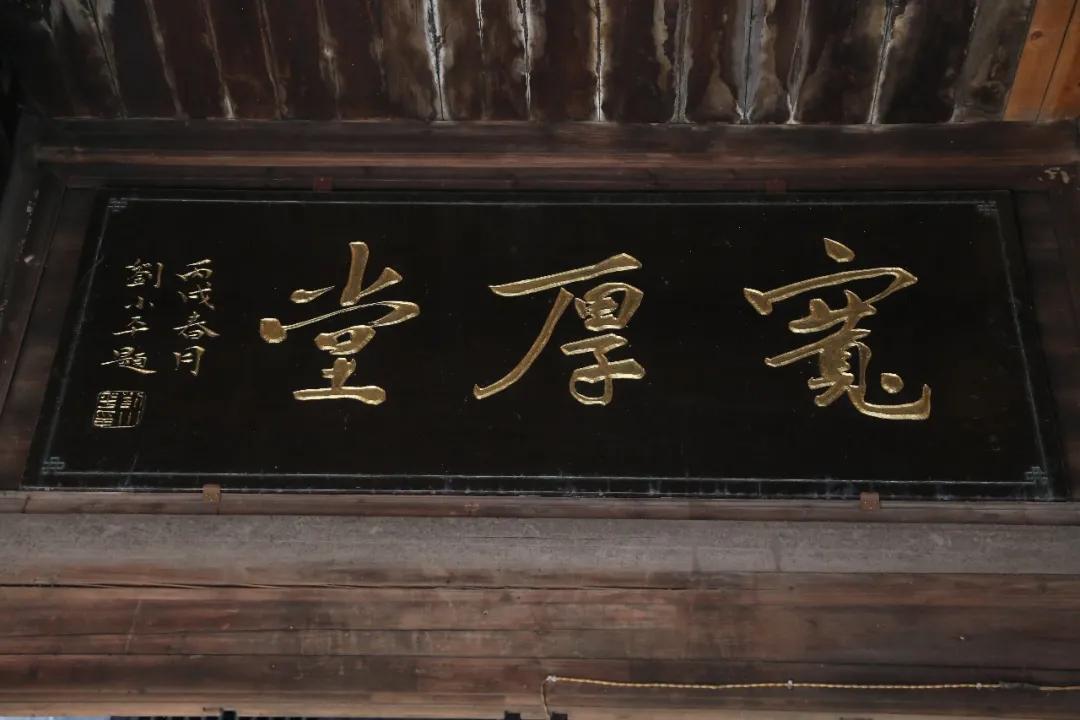 寬厚堂
丙戌春月
劉小平題